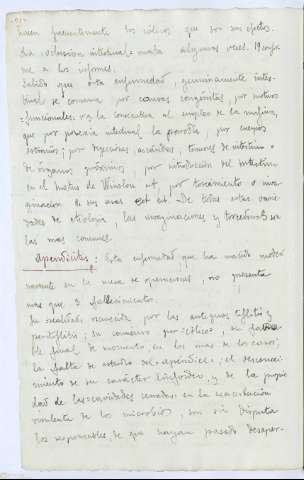 hacen frecuentemente los cólicos que son sus efectos.
La oclusion intestinal mata algunas veces. 19
me a los informes.
Sabido que esta enfermedad, genuinamente intes-
tinal se consuma por causas congénitas, por motivos
funcionales v.g. la consecutiva al empleo de la morfina,
que por paresia intestinal la parodia, por cuerpos
extraños; por bezoares, ascárides, tumores de intestino o
de órganos próximos, por introducción del intestino
en el hiatus de Winslow etc, por torcimiento o inva-
ginacion de sus asas etc etc. De todas estas varie-
dades de etiologia, las invaginaciones y torceduras son
las mas comunes.
Apendicitis: Esta enfermedad que ha nacido moder-
namente en la mesa de operaciones, no presenta
mas que 3 fallecimientos.
Su realidad, oscurecida por las antiguas tiflitis y
peritiflitis; su comienzo por cólico, su
ble final de momento en los mas de los casos;
la falta de estudio del apéndice; el descono-
cimiento de su carácter linfoideo, y de la propie-
dad de las cavidades cerradas en la exacerbación
virulenta de los microbios, son sin disputa
los responsables de que hayan pasado desaper-